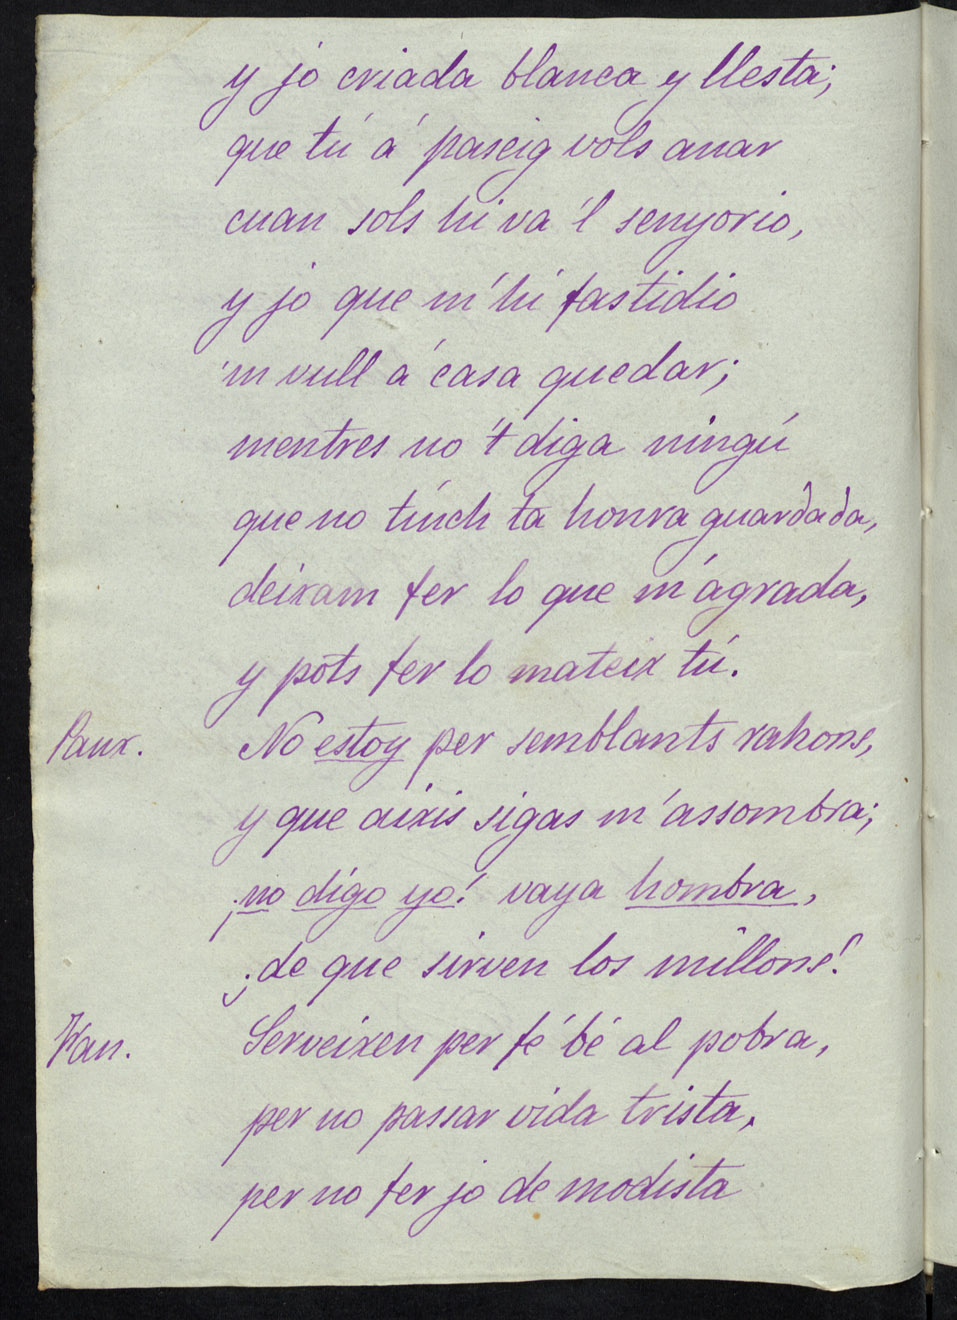 y jo criada blanca y llesta;
que tú á paseig vols anar
cuan sols hi va 'l senyorio,
y jo que m' hi fastidio
'm vull á casa quedar;
mentres no 't diga ningú
que no tinch ta honra guardada,
deixam fer lo que m' agrada,
y pots fer lo mateix tú.
Paux. No estoy per semblants rahons,
y que aixis sigas m' assombra;
¡no digo yo! vaya hombra,
¡de que sirven los millons!
Fran. Serveixen per fé bé al pobra,
per no passar vida trista,
per no fer jo de modista